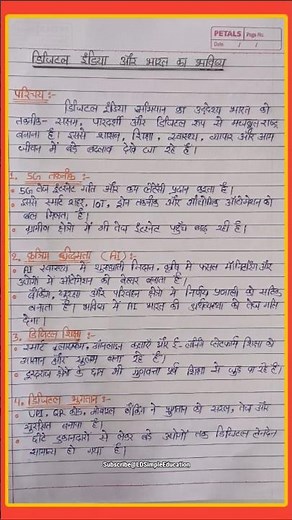 PETALS Page No.
Date / /
डिजिटल इंडिया और भारत का भविष्य
परिचय :-
डिजिटल इंडिया अभियान का उद्देश्य भारत को
तकनीक- सक्षम, पारदर्शी और डिजिटल रूप से मजबूत राष्ट्र
बनाना है। इससे शासन, शिक्षा, स्वास्थ्य, व्यापार और आम
जीवन में बड़े बदलाव देखे जा रहे हैं।
1. 5G तकनीक :-
5G तेज इंटरनेट गति और कम लेटेंसी प्रदान करता है।
इससे स्मार्ट शहर, IOT, ड्रोन तकनीक और औद्योगिक ऑटोमेशन को
बल मिलता है।
ग्रामीण क्षेत्रों में भी तेज इंटरनेट पहुँच बढ़ रही है।
2. कृत्रिम बुद्धिमत्ता (AI) :-
AI स्वास्थ्य में शुरुआती निदान, कृषि में फसल मॉनिटरिंग और
उद्योगों में ऑटोमेशन को बेहतर बनाता है।
बैंकिंग, सुरक्षा और परिवहन क्षेत्रों में निर्णय प्रणाली को सटीक
बनाता है। भविष्य में AI भारत की अर्थव्यवस्था को तेज गति
देगा।
3. डिजिटल शिक्षा :-
स्मार्ट क्लासरूम, ऑनलाइन कक्षाएँ और ई-लर्निंग प्लेटफॉर्म शिक्षा को
आसान और सुलभ बना रहे हैं।
दूरदराज क्षेत्रों के छात्र भी गुणवत्ता पूर्ण शिक्षा से जुड़ पा रहे हैं।
4. डिजिटल भुगतान :-
UPI, QR कोड, मोबाइल बैंकिंग ने भुगतान को सरल, तेज और
सुरक्षित बनाया है।
छोटे दुकानदारों से लेकर बड़े उद्योगों तक डिजिटल लेनदेन
सामान्य हो गया है।
Subscribe@LDSimpleEducation